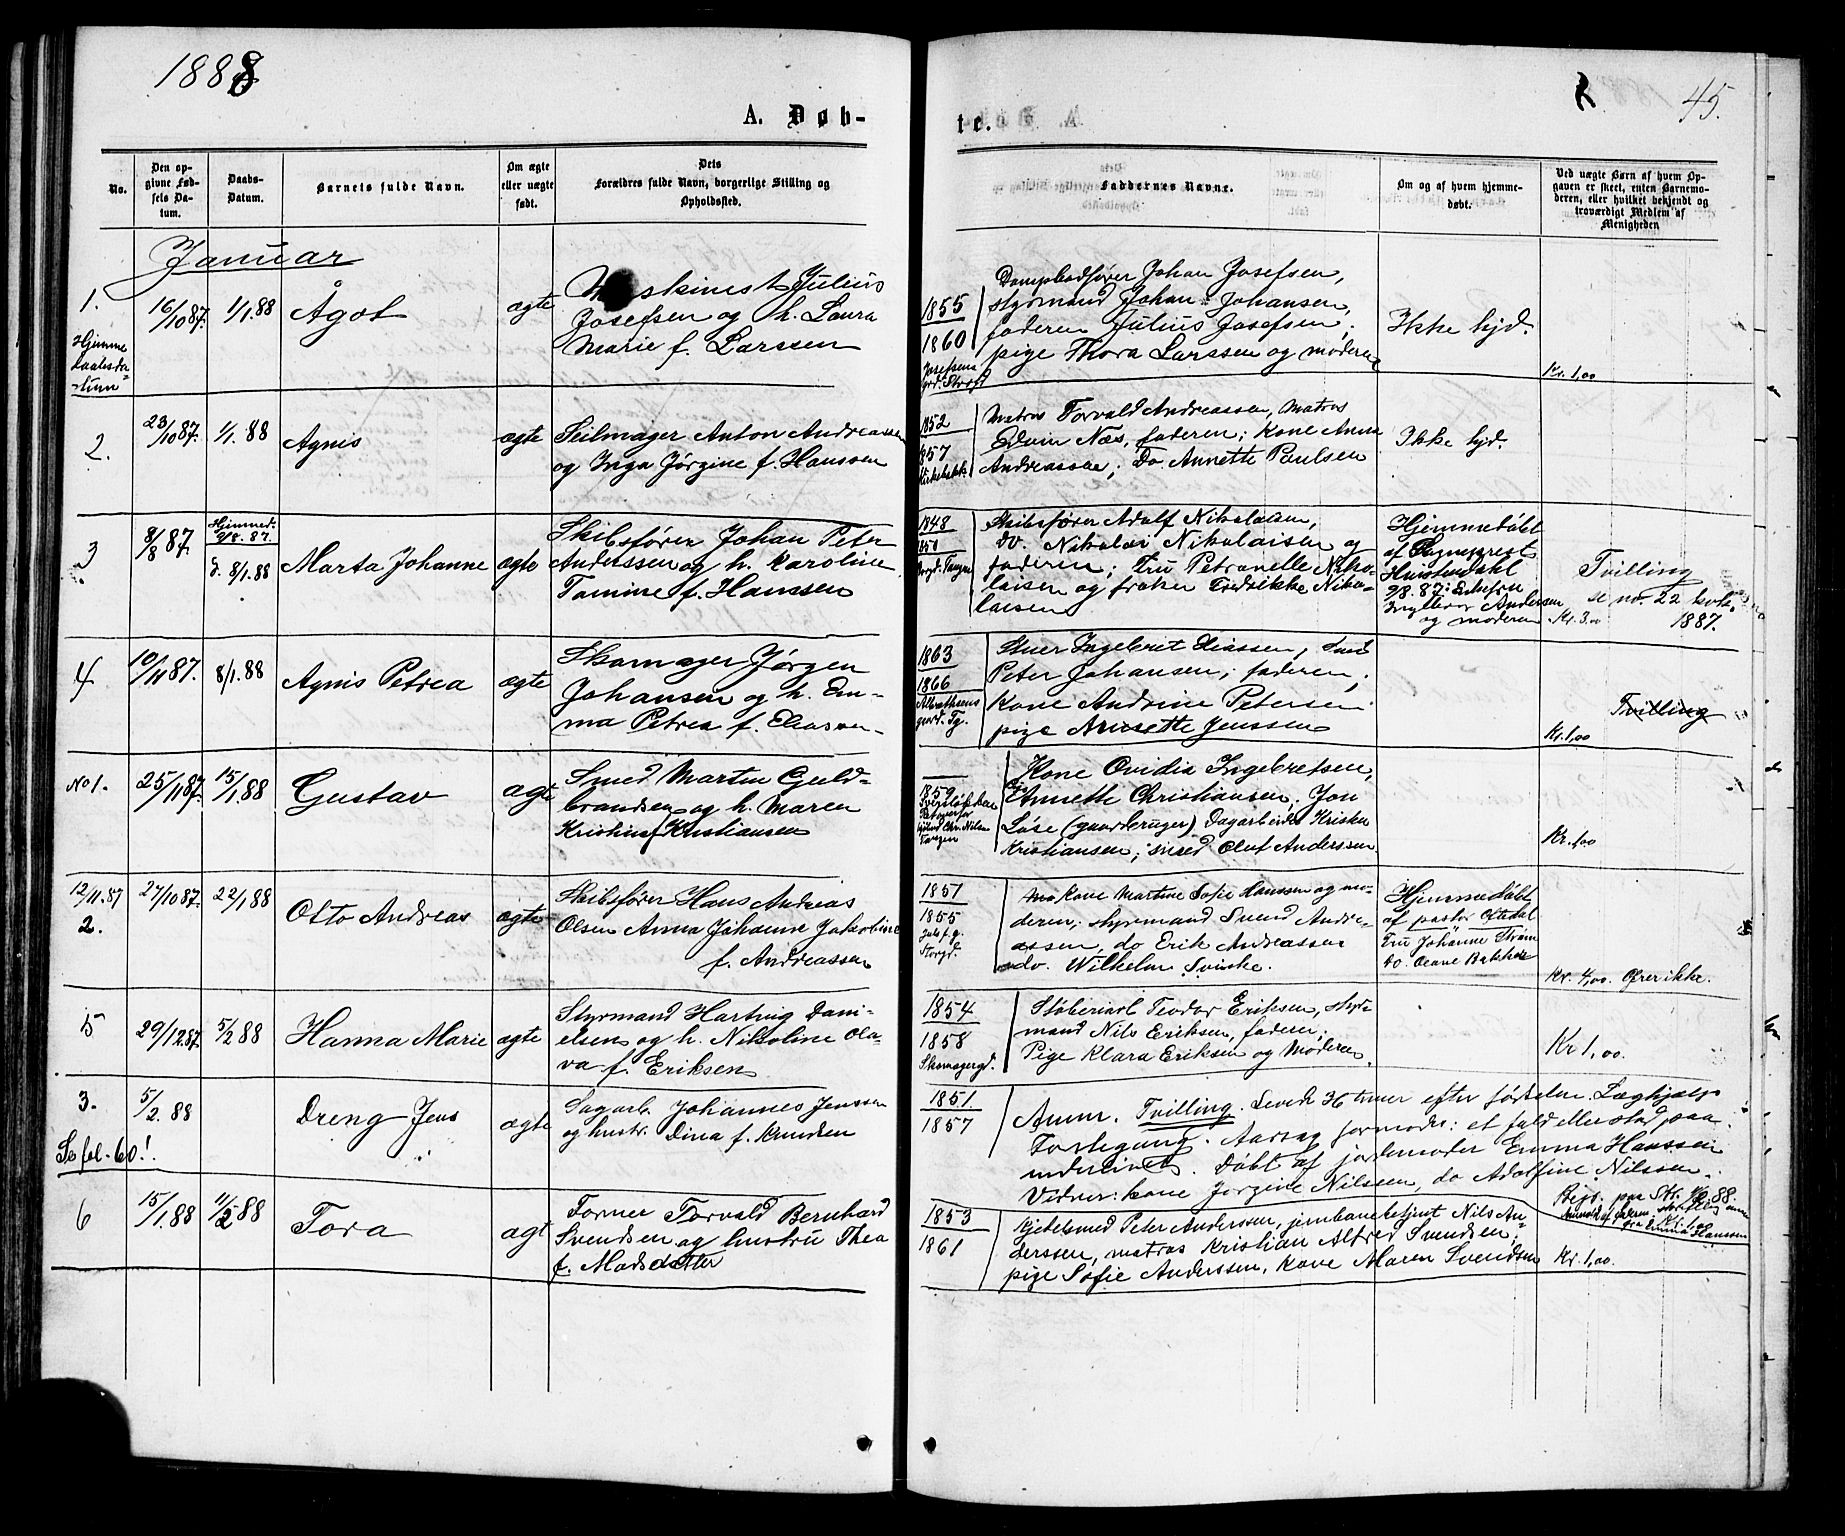 1888
45.
A. Døb-
te.
No.
Den op-
givne Fød-
sels Da-
tum.
Daabs-
Datum.
Barnets fulde Navn.
Om ægte
eller uægte
født.
Dets
Forældres fulde Navn, borgerlige Stilling og
Opholdssted.
Faddernes Navne.
Om og af hvem hjemme-
døbt.
Ved uægte Børn af hvem Op-
gaven er skeet, enten Barnemo-
deren, eller hvilket bekjendt og
troværdigt Medlem af
Menigheden
Januar
1.
Hjemme
daabsda-
tum
16/10 87.
1/1.88
Ågot
ægte
skinist Julius
Josefsen og h. Laura
Marie f. Larssen
1855
1860
Josefsens
grd. Strgt
Dampbadfører Johan Josefsen,
styrmand Johan Johansen,
faderen Julius Josefsen;
pige Thora Larssen og moderen
Ikke hjd.
Kr. 1,00
2.
23/10 87.
1/1. 88
Agnis
ægte
Seilmager Anton Andreassen
og Inga Jørgine f. Hanssen
1852
1857
Kirkebakk.
Matros Torvald Andreassen, Matros
Edam Næs, faderen; Kone Anna
Andreassen; Do. Annette Paulsen
Ikke hjd.
3
8/8 87.
Hjemmed.
9/8.87.
d. 8/1.88
Marta Johanne
ægte
Skibsfører Johan Peter
Anderssen og h. Karoline
Tomine f. Hanssen
1848
1850
Skibsfører Adolf Nikolaisen,
do. Nikolai Nikolaisen og
faderen; Fru Petronelle Niko-
laisen og frøken Fredrikke Niko-
laisen
Hjemmedøbt
af Sognepræst
9/8.87: Enkefru
Andersen
og moderen
Tvilling
se no. 22 hvk.
1887.
Kr. 3.00
4
10/11 87.
8/1.88
Agnis Petrea
ægte
Skomager Jørgen
Johansen og h. Em-
ma Petrea f. Eliassen
1863
1866
Albrethsens
gaard. Tg.
Stuer Ingebret Eliassen, Smed
Peter Johansen; faderen;
Kone Andrine Petersen
pige Annette Jenssen
Tvilling
Kr. 1,00
No 1.
25/11 87.
15/1.88
Gustav
ægte
Smed Martin Guld-
brandsen og h. Maren
Kristine f. Kristiansen
1859
Tangen
Kone Ovidia Ingebretsen,
Annette Christiansen; Jon
Løse (gaardbruger) Dagarbeider Kristen
Kristiansen; smed Oluf Anderssen
Kr. 1,00
12/11.87
2.
27/10 87.
22/1 88
Otto Andreas
ægte
Skibsfører Hans Andreas
Olsen Anna Johanne Jakobine
f. Andreassen
1851
1855
Storgd.
Kone Martine Sofie Hanssen og mo-
deren; styrmand Svend Andre-
assen, do Erik Andreassen
do. Wilhelm Svinke.
Hjemmedøbt
af pastor Oftedal
Fru Johanne Strøm
Do. Oleave Bakke
Kr. 4,00. Ofrer ikke.
5
29/12 87.
5/2 88
Hanna Marie
ægte
Styrmand Hartvig Dani-
elsen og h. Nikoline Ola-
va f. Eriksen
1854
1858
Skomagergd.
Støberiarb. Teodor Eriksen, styr-
mand Nils Eriksen, faderen;
Pige Klara Eriksen og Moderen.
Kr 1,00.
3.
Se fol. 60!
5/2.88
Dreng Jens
ægte
Sagarb. Johannes Jenssen
og hustr. Dina f. Knudsen
1851
1857
Anm. Tvilling. Levede 36 timer efter fødselen. Lægehjælp
Forlegang. Aarsag formodes: et fald eller stød paa
underlivet. Døbt af jordemoder Emma Hanssen
Vidner: kone Jørgine Nilssen, do Adolfine Nilssen.
Kr. 1,00
Emma Hanssen
6
15/1.88
11/2 88
Tora
ægt
Former Torvald Bernhard
Svendsen og hustru Thea
f. Madsdatter
1853
1861
Kjedelsmed Peter Anderssen, jernbanebetjent Nils An-
derssen, matros Kristian Alfred Svendsen;
pige Sofie Anderssen, Kone Maren Svendsen
Kr. 1,00.